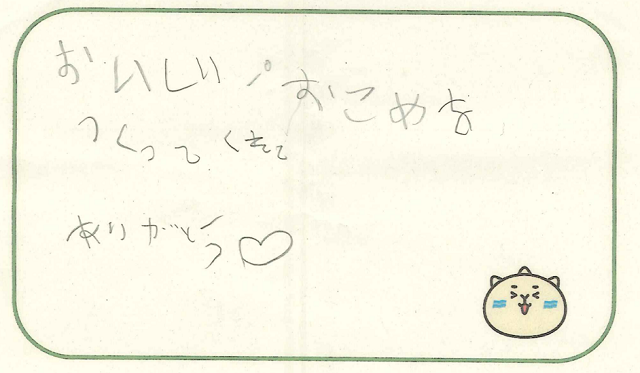 おいしい おこめを
つくってくれて
ありがとう♡